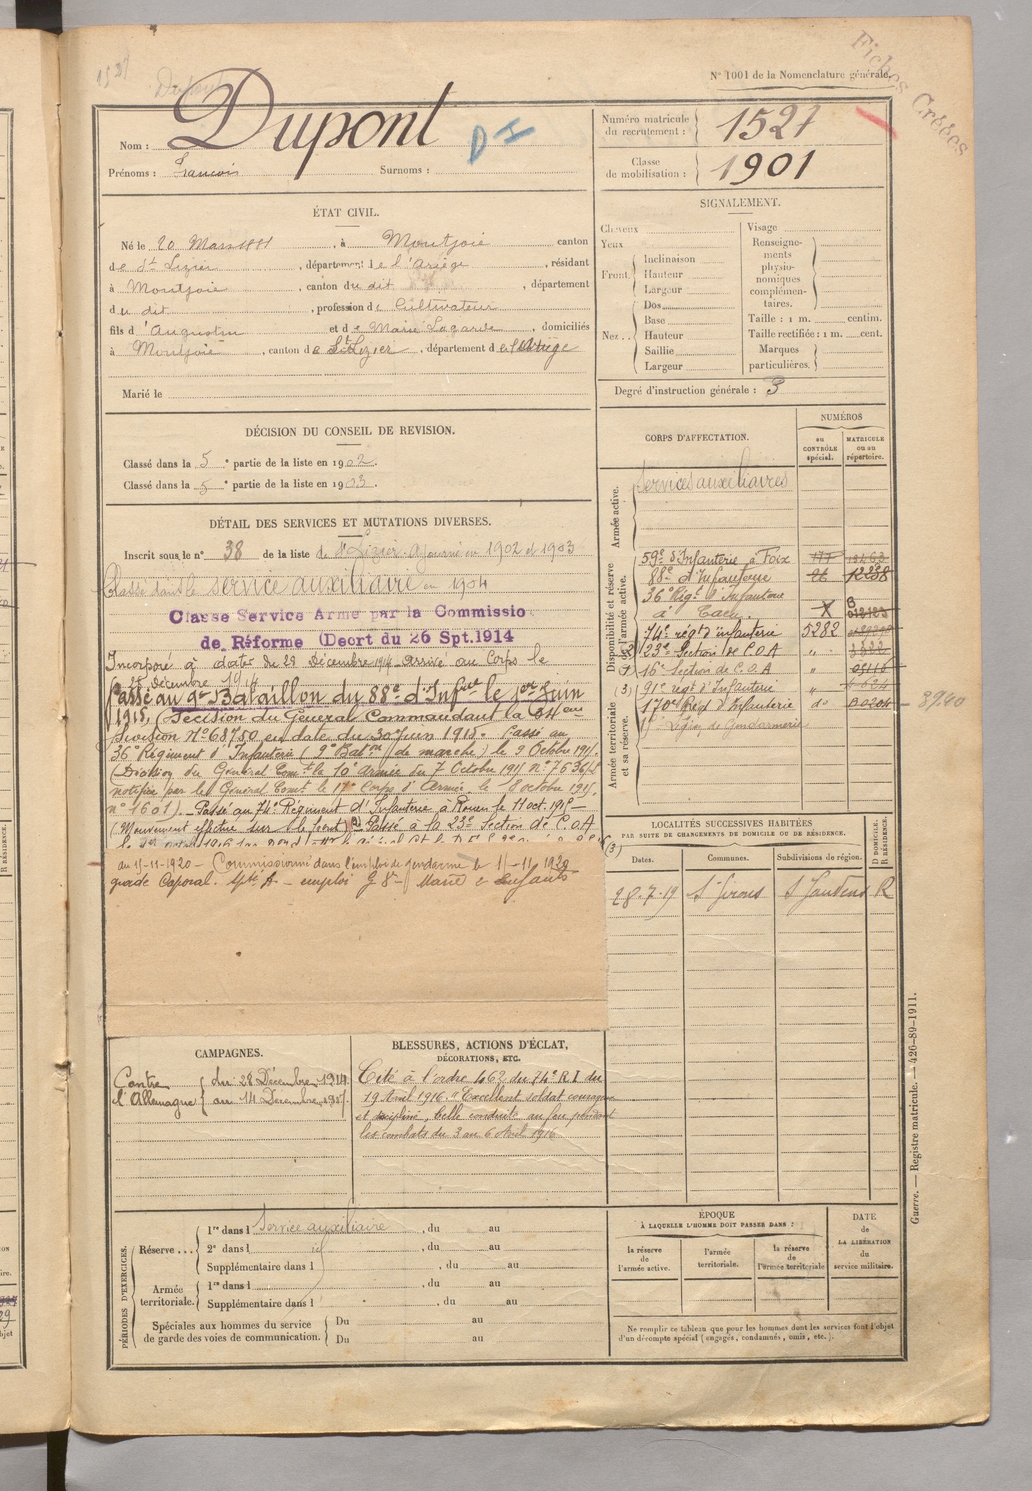 Fiches Créées
N° 1001 de la Nomenclature générale.
Nom : Dupont
DI
Prénoms : François Surnoms :
Numéro matricule du recrutement : 1527
Classe de mobilisation : 1901
ÉTAT CIVIL.
Né le 20 Mars 1881, à Montjoie canton
de St Lizier, département de l'Ariège, résidant
à Montjoie, canton du dit, département
du dit, profession de Cultivateur
fils d'Augustin et de Marie Lagarde, domiciliés
à Montjoie, canton de St Lizier, département de l'Ariège
Marié le
SIGNALEMENT.
Cheveux
Yeux
Front. Inclinaison
Hauteur
Largeur
Nez... Dos
Base
Hauteur
Saillie
Largeur
Visage
Renseignements physionomiques complémentaires.
Taille : 1 m. centim.
Taille rectifiée : 1 m. cent.
Marques particulières.
Degré d'instruction générale : 3
DÉCISION DU CONSEIL DE REVISION.
Classé dans la 5e partie de la liste en 1902.
Classé dans la 5e partie de la liste en 1903.
DÉTAIL DES SERVICES ET MUTATIONS DIVERSES.
Inscrit sous le n° 38 de la liste de St Lizier. Ajourné en 1902 et 1903
Classé dans le service auxiliaire en 1904
Classe Service Armé par la Commissio
de Réforme (Décrt du 26 Spt.1914
Incorporé à dater du 29 Décembre 1914 Arrivé au Corps le
28 Décembre 1914
Passé au 9e Bataillon du 88e d'Infrie le 1er Juin
1915, (Décision du Général Commandant la 34eme
Division N° 6875.0 en date du 30 Juin 1915. Passé au
36e Régiment d'Infanterie (2e Baton de marche) le 9 Octobre 1915.
(Décision du Général Comt la 10e Armée du 7 Octobre 1915 n° 7636/
notifiée par le Général Comt le 17e Corps d'Armée le 8 octobre 1915.
n° 1601). Passé au 74e Régiment d'Infanterie à Rouen le 11 oct. 1915
(Mouvement effectué sur le front) Passé à la 23e Section de C.O.A
au 11-11-1920 - Commissionné dans l'emploi de gendarme le 11-11-1920
grade Caporal. - emploi - Marié 2 Enfants
CORPS D'AFFECTATION.
NUMÉROS
au CONTRÔLE spécial.
MATRICULE ou au répertoire.
Armée active.
Services auxiliaires
Disponibilité et réserve de l'armée active.
59e d'Infanterie à Foix 177
88e d'Infanterie 26 12238
36e Régt d'Infanterie
à Caen X
74e régt d'infanterie 5282
23e Section de C.O.A "
16e Section de C.O.A "
Armée territoriale et sa réserve.
(3) 91e régt d'Infanterie "
170e Régt d'Infanterie do 8940
Légion de Gendarmerie
LOCALITÉS SUCCESSIVES HABITÉES
PAR SUITE DE CHANGEMENTS DE DOMICILE OU DE RÉSIDENCE.
Dates. Communes. Subdivisions de région. D DOMICILE. R RÉSIDENCE.
28.7.19 St Girons St Gaudens R
CAMPAGNES.
Contre l'Allemagne
du 28 Décembre 1914
au 14 Décembre
BLESSURES, ACTIONS D'ÉCLAT,
DÉCORATIONS, ETC.
Cité à l'ordre 462 du 74e R.I du
19 Avril 1916. "Excellent soldat courageux
et discipliné, belle conduite au feu pendant
les combats du 3 au 6 Avril 1916
PÉRIODES D'EXERCICES.
Réserve...
1re dans l Service auxiliaire, du au
2e dans l id, du au
Supplémentaire dans l , du au
Armée territoriale.
1re dans l , du au
Supplémentaire dans l , du au
Spéciales aux hommes du service de garde des voies de communication.
Du au
Du au
ÉPOQUE
À LAQUELLE L'HOMME DOIT PASSER DANS :
la réserve de l'armée active.
l'armée territoriale.
la réserve de l'armée territoriale
DATE de LA LIBÉRATION du service militaire.
Ne remplir ce tableau que pour les hommes dont les services font l'objet
d'un décompte spécial (engagés, condamnés, omis, etc.).
Guerre. — Registre matricule. — 426-89-1911.